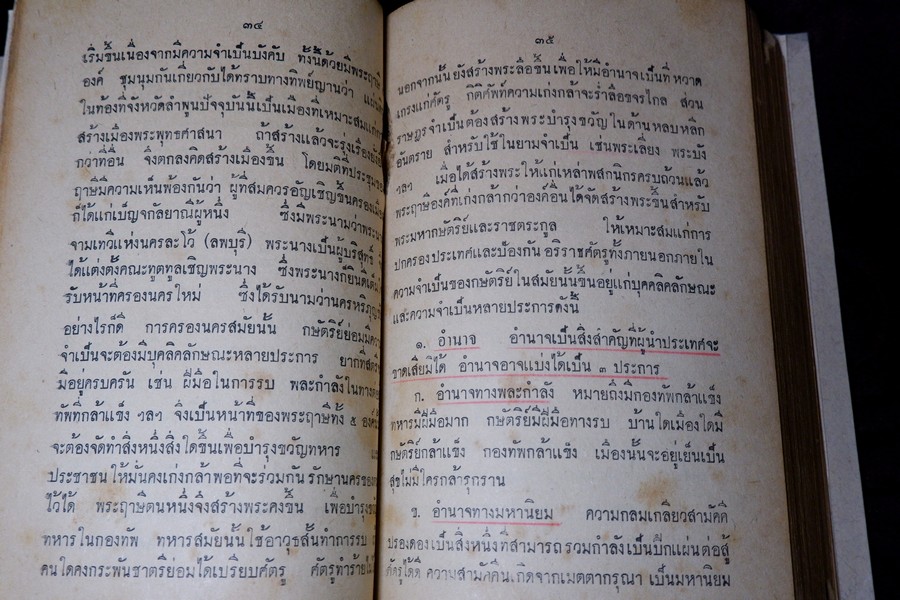 ๓๔
เริ่มขึ้นเนื่องจากมีความจำเป็นบังคับ ทั้งนี้ด้วยมีพระฤาษี
องค์ ชุมนุมกันเกี่ยวกับได้ทราบทางทิพย์ญานว่า
ในท้องที่จังหวัดลำพูนปัจจุบันนี้เป็นเมืองที่เหมาะสมแก่
สร้างเมืองพระพุทธศาสนา ถ้าสร้างแล้วจะรุ่งเรือง
กว่าที่อื่น จึงตกลงคิดสร้างเมืองขึ้น โดยมติที่ประชุม
ฤาษีมีความเห็นพ้องกันว่า ผู้ที่สมควรอัญเชิญขึ้นครองเมือง
ก็ได้แก่เบ็ญจกัลยาณีผู้หนึ่ง ซึ่งมีพระนามว่าพระนาง
จามเทวีแห่งนครละโว้ (ลพบุรี) พระนางเป็นผู้บริสุทธิ์
ได้แต่งตั้งคณะทูตทูลเชิญพระนาง ซึ่งพระนางก็ยินดี
รับหน้าที่ครองนครใหม่ ซึ่งได้รับนามว่านครหริภุญ
อย่างไรก็ดี การครองนครสมัยนั้น กษัตริย์ย่อมมี
จำเป็นจะต้องมีบุคลิคลักษณะหลายประการ ยากที่สตรี
มีอยู่ครบครัน เช่น ฝีมือในการรบ พละกำลังในทาง
ทัพที่กล้าแข็ง ฯลฯ จึงเป็นหน้าที่ของพระฤาษีทั้ง ๕ องค์
จะต้องจัดทำสิ่งหนึ่งสิ่งใดขึ้นเพื่อบำรุงขวัญทหาร
ประชาชนให้มั่นคงเก่งกล้าพอที่จะร่วมกันรักษานคร
ไว้ได้ พระฤาษีตนหนึ่งจึงสร้างพระคงขึ้น เพื่อบำรุง
ทหารในกองทัพ ทหารสมัยนั้นใช้อาวุธสั้นทำการรบ
คนใดคงกระพันชาตรีย่อมได้เปรียบศัตรู ศัตรูทำร้าย
๓๕
นอกจากนั้นยังสร้างพระลือขึ้นเพื่อให้มีอำนาจเป็นที่หวาด
เกรงแก่ศัตรู กิติศัพท์ความเก่งกล้าจะร่ำลือขจรไกล ส่วน
ราษฎรจำเป็นต้องสร้างพระบำรุงขวัญในด้านหลบหลีก
อันตราย สำหรับใช้ในยามจำเป็น เช่นพระเลี่ยง พระบัง
ฯลฯ เมื่อได้สร้างพระให้แก่เหล่าพสกนิกรครบถ้วนแล้ว
พระฤาษีองค์ที่เก่งกล้ากว่าองค์อื่นได้จัดสร้างพระขึ้นสำหรับ
พระมหากษัตริย์และราชตระกูล ให้เหมาะสมแก่การ
ปกครองประเทศและป้องกัน อริราชศัตรูทั้งภายนอกภายใน
ความจำเป็นของกษัตริย์ในสมัยนั้นขึ้นอยู่แก่บุคคลิคลักษณะ
และความจำเป็นหลายประการดังนี้
๑. อำนาจ อำนาจเป็นสิ่งสำคัญที่ผู้นำประเทศจะ
ขาดเสียมิได้ อำนาจอาจแบ่งได้เป็น ๓ ประการ
ก. อำนาจทางพละกำลัง หมายถึงมีกองทัพกล้าแข็ง
ทหารมีฝีมือมาก กษัตริย์มีฝีมือทางรบ บ้านใดเมืองใดมี
กษัตริย์กล้าแข็ง กองทัพกล้าแข็ง เมืองนั้นจะอยู่เย็นเป็น
สุขไม่มีใครกล้ารุกราน
ข. อำนาจทางมหานิยม ความกลมเกลียวสามัคคี
ปรองดองเป็นสิ่งหนึ่งที่สามารถรวมกำลังเป็นปึกแผ่นต่อสู้
ศัตรูได้ดี ความสามัคคีนเกิดจากเมตตากรุณา เป็นมหานิยม